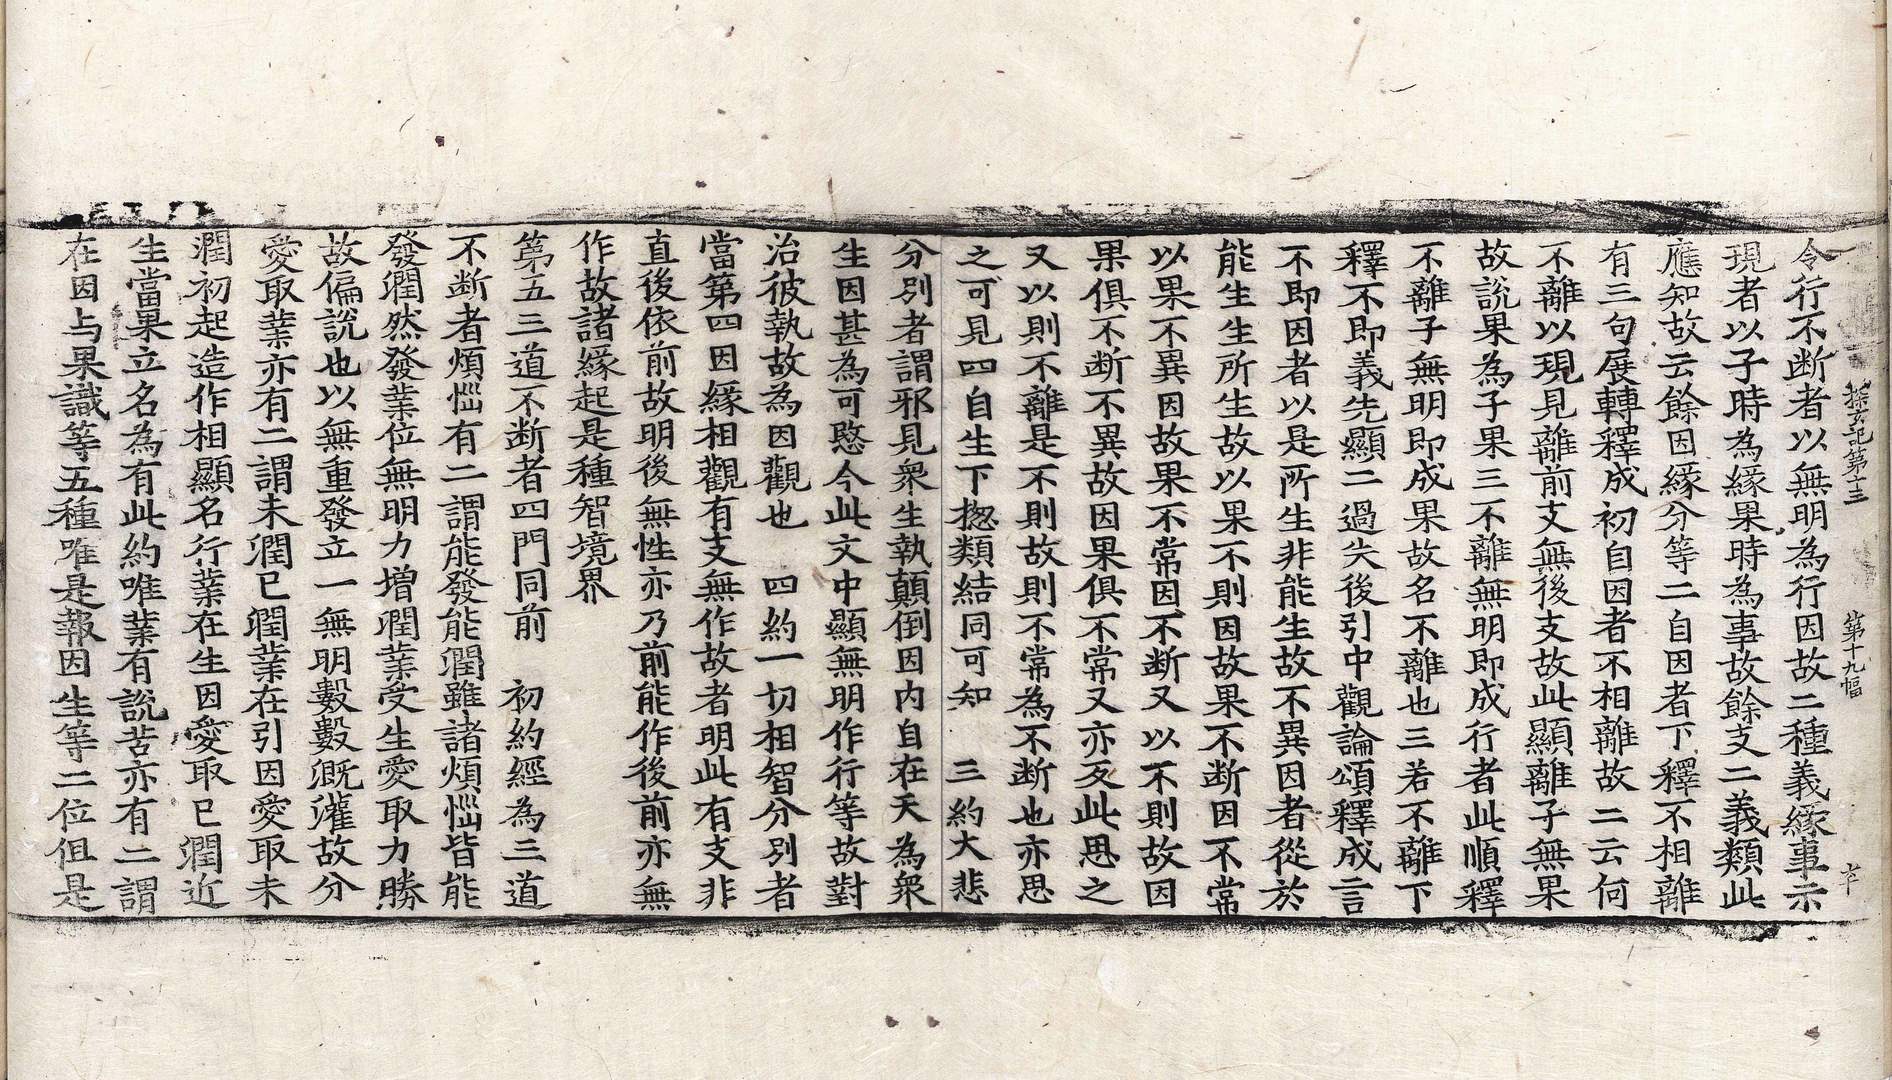 探玄記第十三　第十九幅
令行不断者以無明為行因故二種義緣事示
現者以子時為緣果時為事故餘支二義類此
應知故云餘因緣分等二自因者下釋不相離
有三句展轉釋成初自因者不相離故二云何
不離以現見離前支無後支故此顯離子無果
故說果為子果三不離無明即成行者此順釋
不離子無明即成果故名不離也三若不離下
釋不即義先顯二過失後引中觀論頌釋成言
不即因者以是所生非能生故不異因者從於
能生生所生故以果不則因故果不断因不常
以果不異因故果不常因不断又以不則故因
果俱不断不異故因果俱不常又亦反此思之
又以則不離是不則故則不常為不断也亦思
之可見四自生下揔類結同可知　三約大悲
分別者謂邪見衆生執顛倒因内自在天為衆
生因甚為可愍今此文中顯無明作行等故對
治彼執故為因觀也　四約一切相智分別者
當第四因緣相觀有支無作故者明此有支非
直後依前故明後無性亦乃前能作後前亦無
作故諸緣起是種智境界
第五三道不断者四門同前　初約經為三道
不断者煩惱有二謂能發能潤雖諸煩惱皆能
發潤然發業位無明力增潤業受生愛取力勝
故偏說也以無重發立一無明數數溉灌故分
愛取業亦有二謂未潤已潤業在引因愛取未
潤初起造作相顯名行業在生因愛取已潤近
生當果立名為有此約唯業有說苦亦有二謂
在因与果識等五種唯是報因生等二位但是